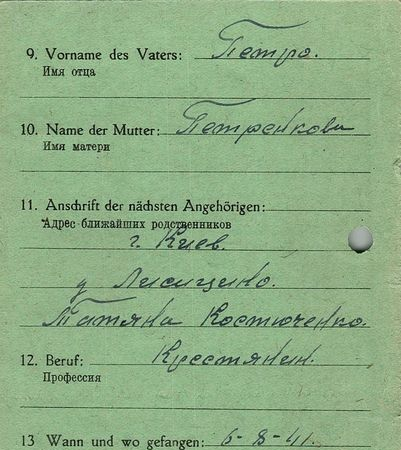 9. Vorname des Vaters: Петро.
Имя отца
10. Name der Mutter: Петренкова
Имя матери
11. Anschrift der nächsten Angehörigen:
Адрес ближайших родственников
г. Киев.
д Лисицино.
Татяна Костюченко.
12. Beruf: Крестянин.
Профессия
13 Wann und wo gefangen: 6-8-41.